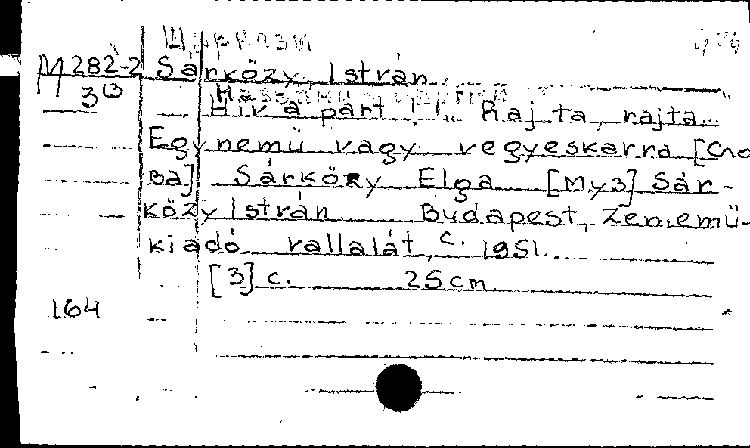 Шаркези
М 282-2 Sárközy István
3(3)
Hív a párt !.. Rajta, rajta..
Egynemü vagy vegyeskarra [Сло
ва] Sárközy Elga [Муз] Sár-
közy István Budapest, Zenemü-
kiadó vallalát, c. 1951.
[3] с. 25 cm
164